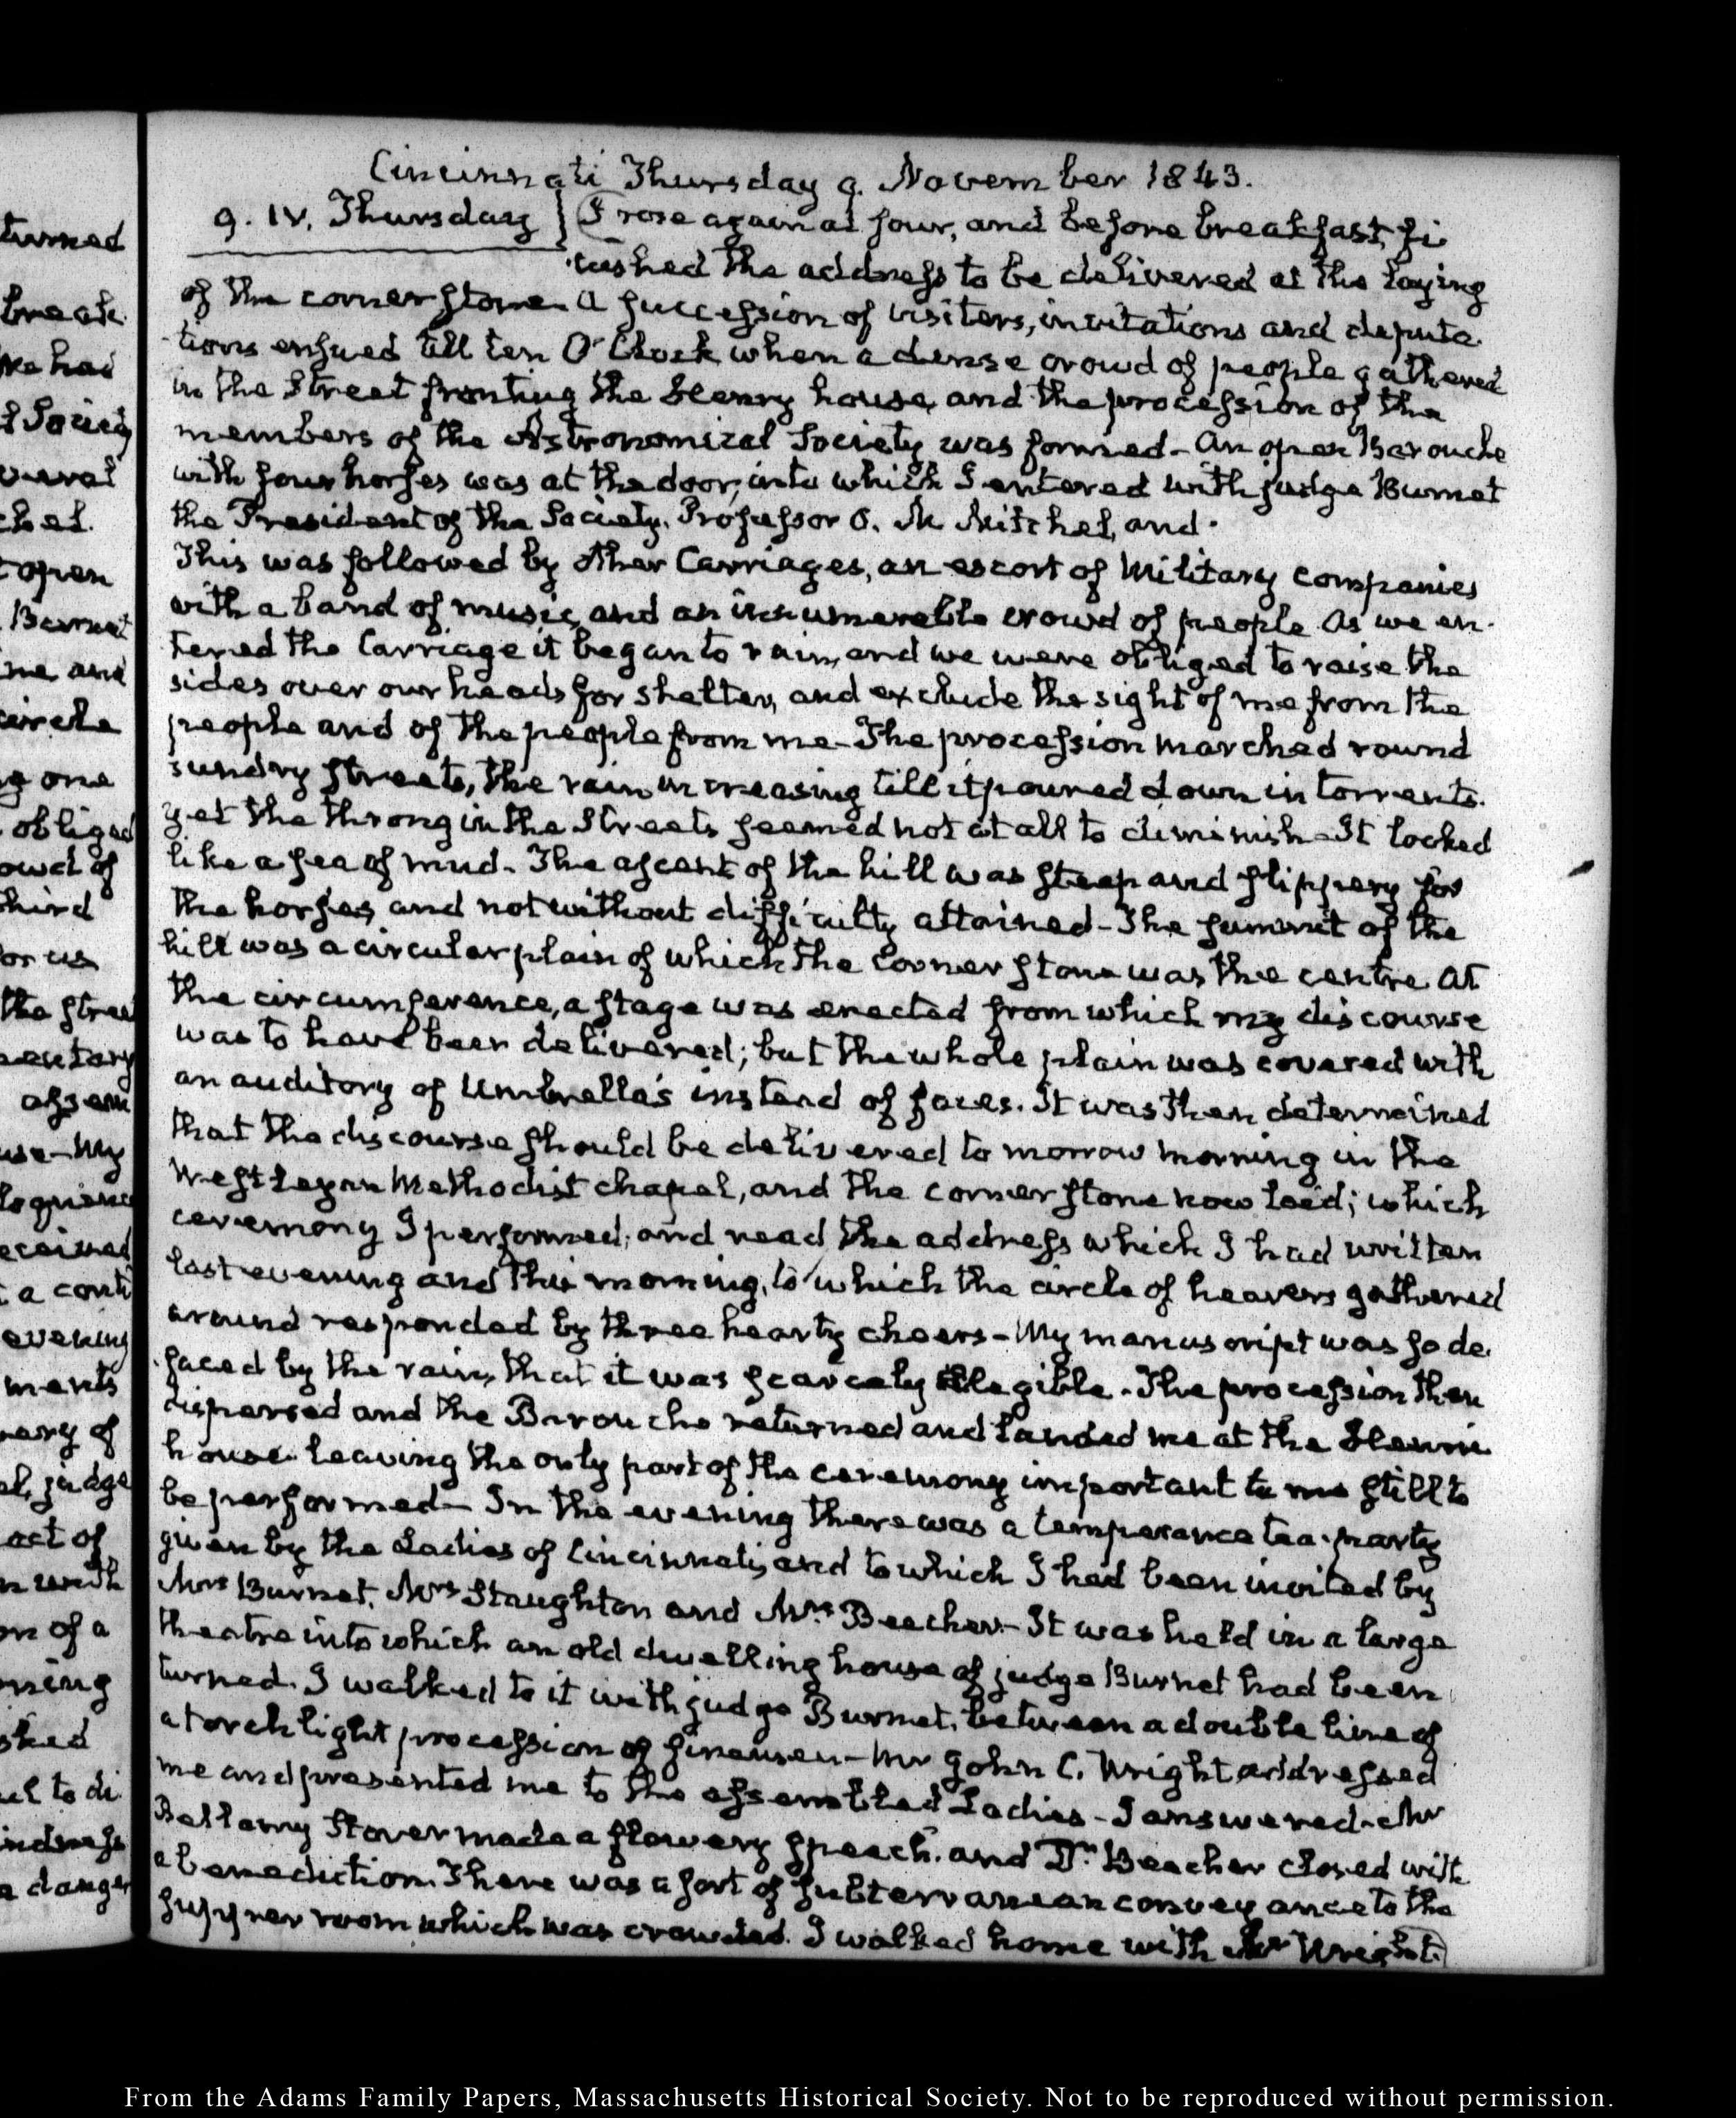 Cincinnati Thursday 9. November 1843.
9. IV. Thursday I rose again at four, and before breakfast, fi
nished the address to be delivered at the laying
of the corner stone. A succession of visiters, invitations and deputa
tions ensued till ten O'Clock when a dense crowd of people gathered
in the Street fronting the Henry house, and the procession of the
members of the Astronomical Society was formed - An open Barouche
with four horses was at the door, into which I entered with judge Burnet
the President of the Society. Professor O. M. Mitchel, and
This was followed by other Carriages, an escort of Military companies
with a band of music, and an innumerable crowd of people. As we en-
tered the Carriage it began to rain, and we were obliged to raise the
sides over our heads for shelter, and exclude the sight of me from the
people and of the people from me - The procession marched round
sundry Streets, the rain increasing till it poured down in torrents.
yet the throng in the Streets seemed not at all to diminish - It looked
like a sea of mud. The ascent of the hill was steep and slippery for
the horses, and not without difficulty attained - The summit of the
hill was a circular plain of which the Corner stone was the centre. At
the circumference, a stage was erected from which my discourse
was to have been delivered; but the whole plain was covered with
an auditory of Umbrella's instead of faces. It was then determined
that the discourse should be delivered to morrow morning in the
Westleyan Methodist chapel, and the corner stone now laid; which
ceremony I performed, and read the address which I had written
last evening and this morning, to which the circle of hearers gathered
around responded by three hearty cheers - My manuscript was so de
faced by the rain, that it was scarcely legible. The procession then
dispersed and the Barouche returned and landed me at the Henrie
house. Leaving the only part of the ceremony important to me still to
be performed - In the evening there was a temperance tea-party
given by the Ladies of Cincinnati, and to which I had been invited by
Mrs Burnet, Mrs Staughton and Mrs Beecher - It was held in a large
theatre into which an old dwelling house of judge Burnet had been
turned. I walked to it with judge Burnet, between a double line of
a torch light procession of firemen - Mr John C. Wright addressed
me and presented me to the assembled Ladies - I answered - Mr
Bellamy Storer made a flowery speech. and Dr. Beecher closed with
a benediction. There was a sort of subterranean conveyance to the
supper room which was crowded. I walked home with Mr Wright.
turned
break
had
Society
several
chel.
open
Burnet
me and
circle
one
obliged
owd of
third
for us
the stree
entary
assem
use - My
eceived
a conti
evening
ments
of
judge
act of
with
on of a
to di
danger
From the Adams Family Papers, Massachusetts Historical Society. Not to be reproduced without permission.